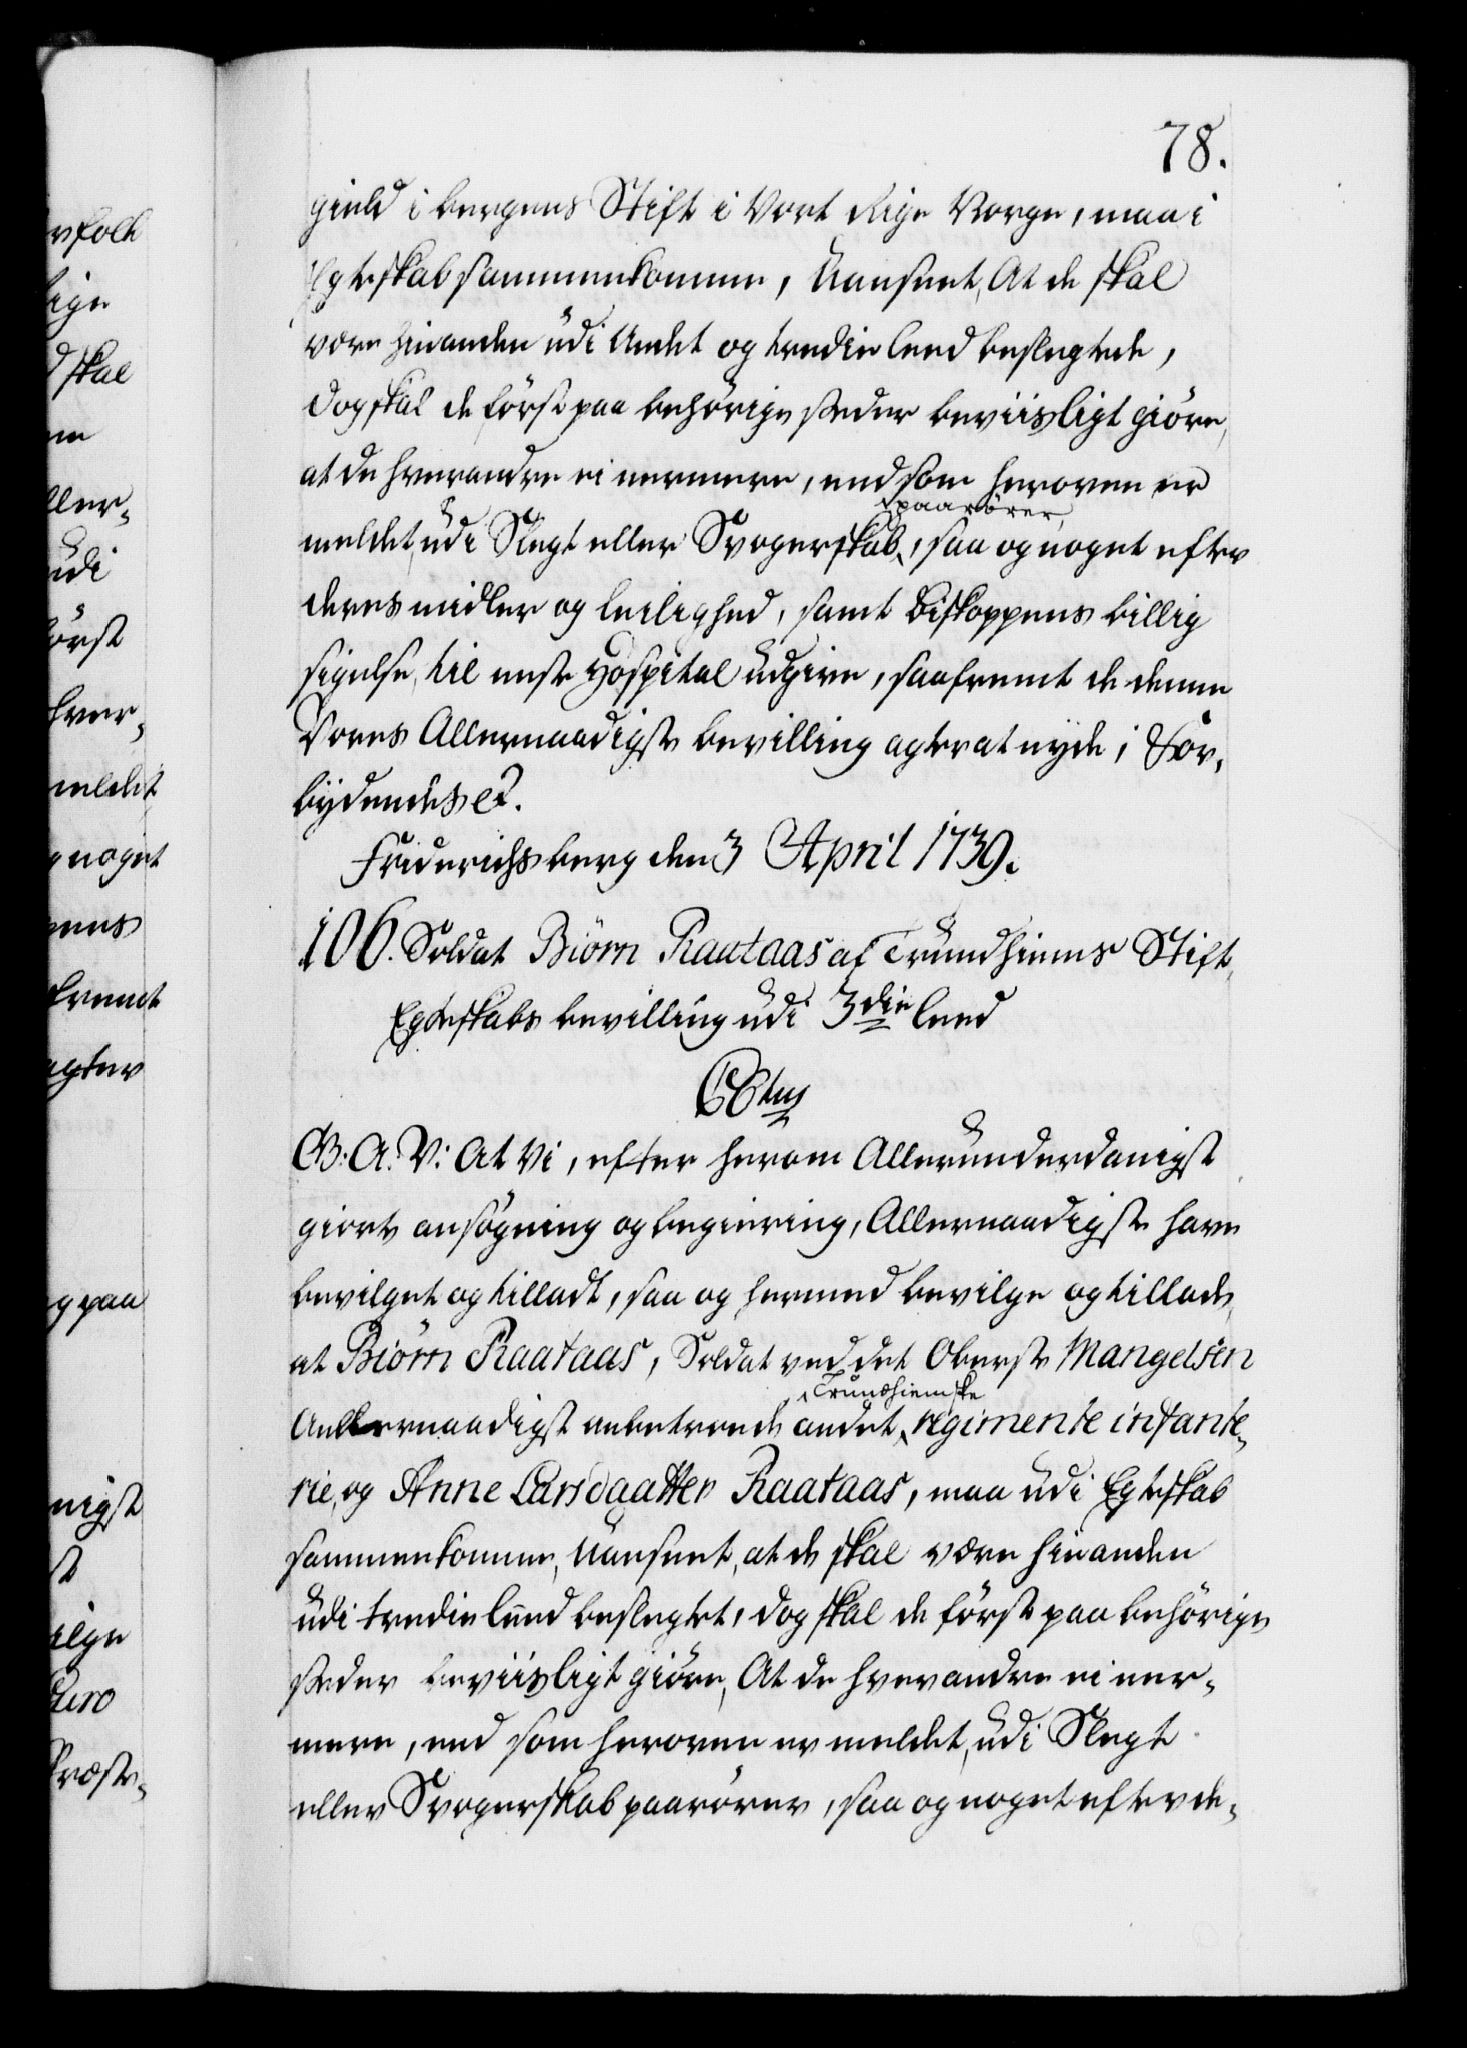 78.
gield i bergens Stift i Vort Rige Norge, maa i
Egteskab sammenkomme, Uanseet, At de skal
være hinanden udi Andet og tredie Leed beslegtede,
dog skal de först paa behörige stæder beviisligt giöre,
at de hverandre ei nermere, end som heroven er
meldet, udi Slegt eller Svogerskab paarörer, saa og noget efter
deres midler og leilighed, samt Biskoppens billig
sigelse, til neste Hospital udgive, saafremt de denne
Vores Allernaadigste bevilling agter at nyde, For-
bydendes etc.
Friderichsberg den 3 April 1739.
106. Soldat Biörn Raataas af Trundhiems Stift,
Egteskabs bevilling udi 3die Leed
C6tus
G: A: V: At Vi, efter herom Allerunderdanigst
giorte ansögning og begiering, Allernaadigste have
bevilget og tilladt, saa og hermed bevilge og tillade,
at Biörn Raataas, Soldat ved det Oberste Mangelsen
Allernaadigst anbetroede andet Trundhiemske regimente infante-
rie, og Anne Larsdaatter Raataas, maa udi Egteskab
sammenkomme, Uanseet, at de skal være hinanden
udi tredie leed beslegtet, dog skal de först paa behörige
stæder beviisligt giöre, At de hverandre ei ner-
mere, end som heroven er meldet, udi Slegt
eller Svogerskab paarörer, saa og noget efter de-